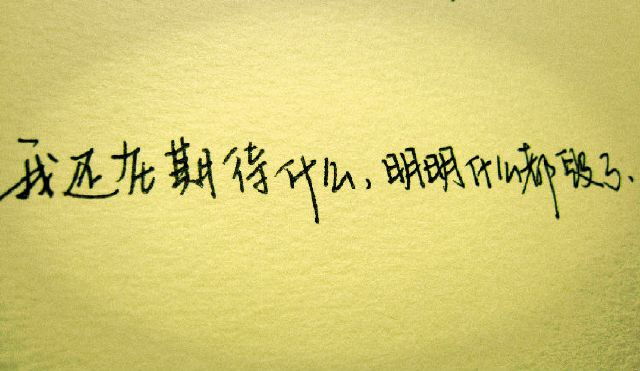 我还在期待什么,明明什么都毁了.